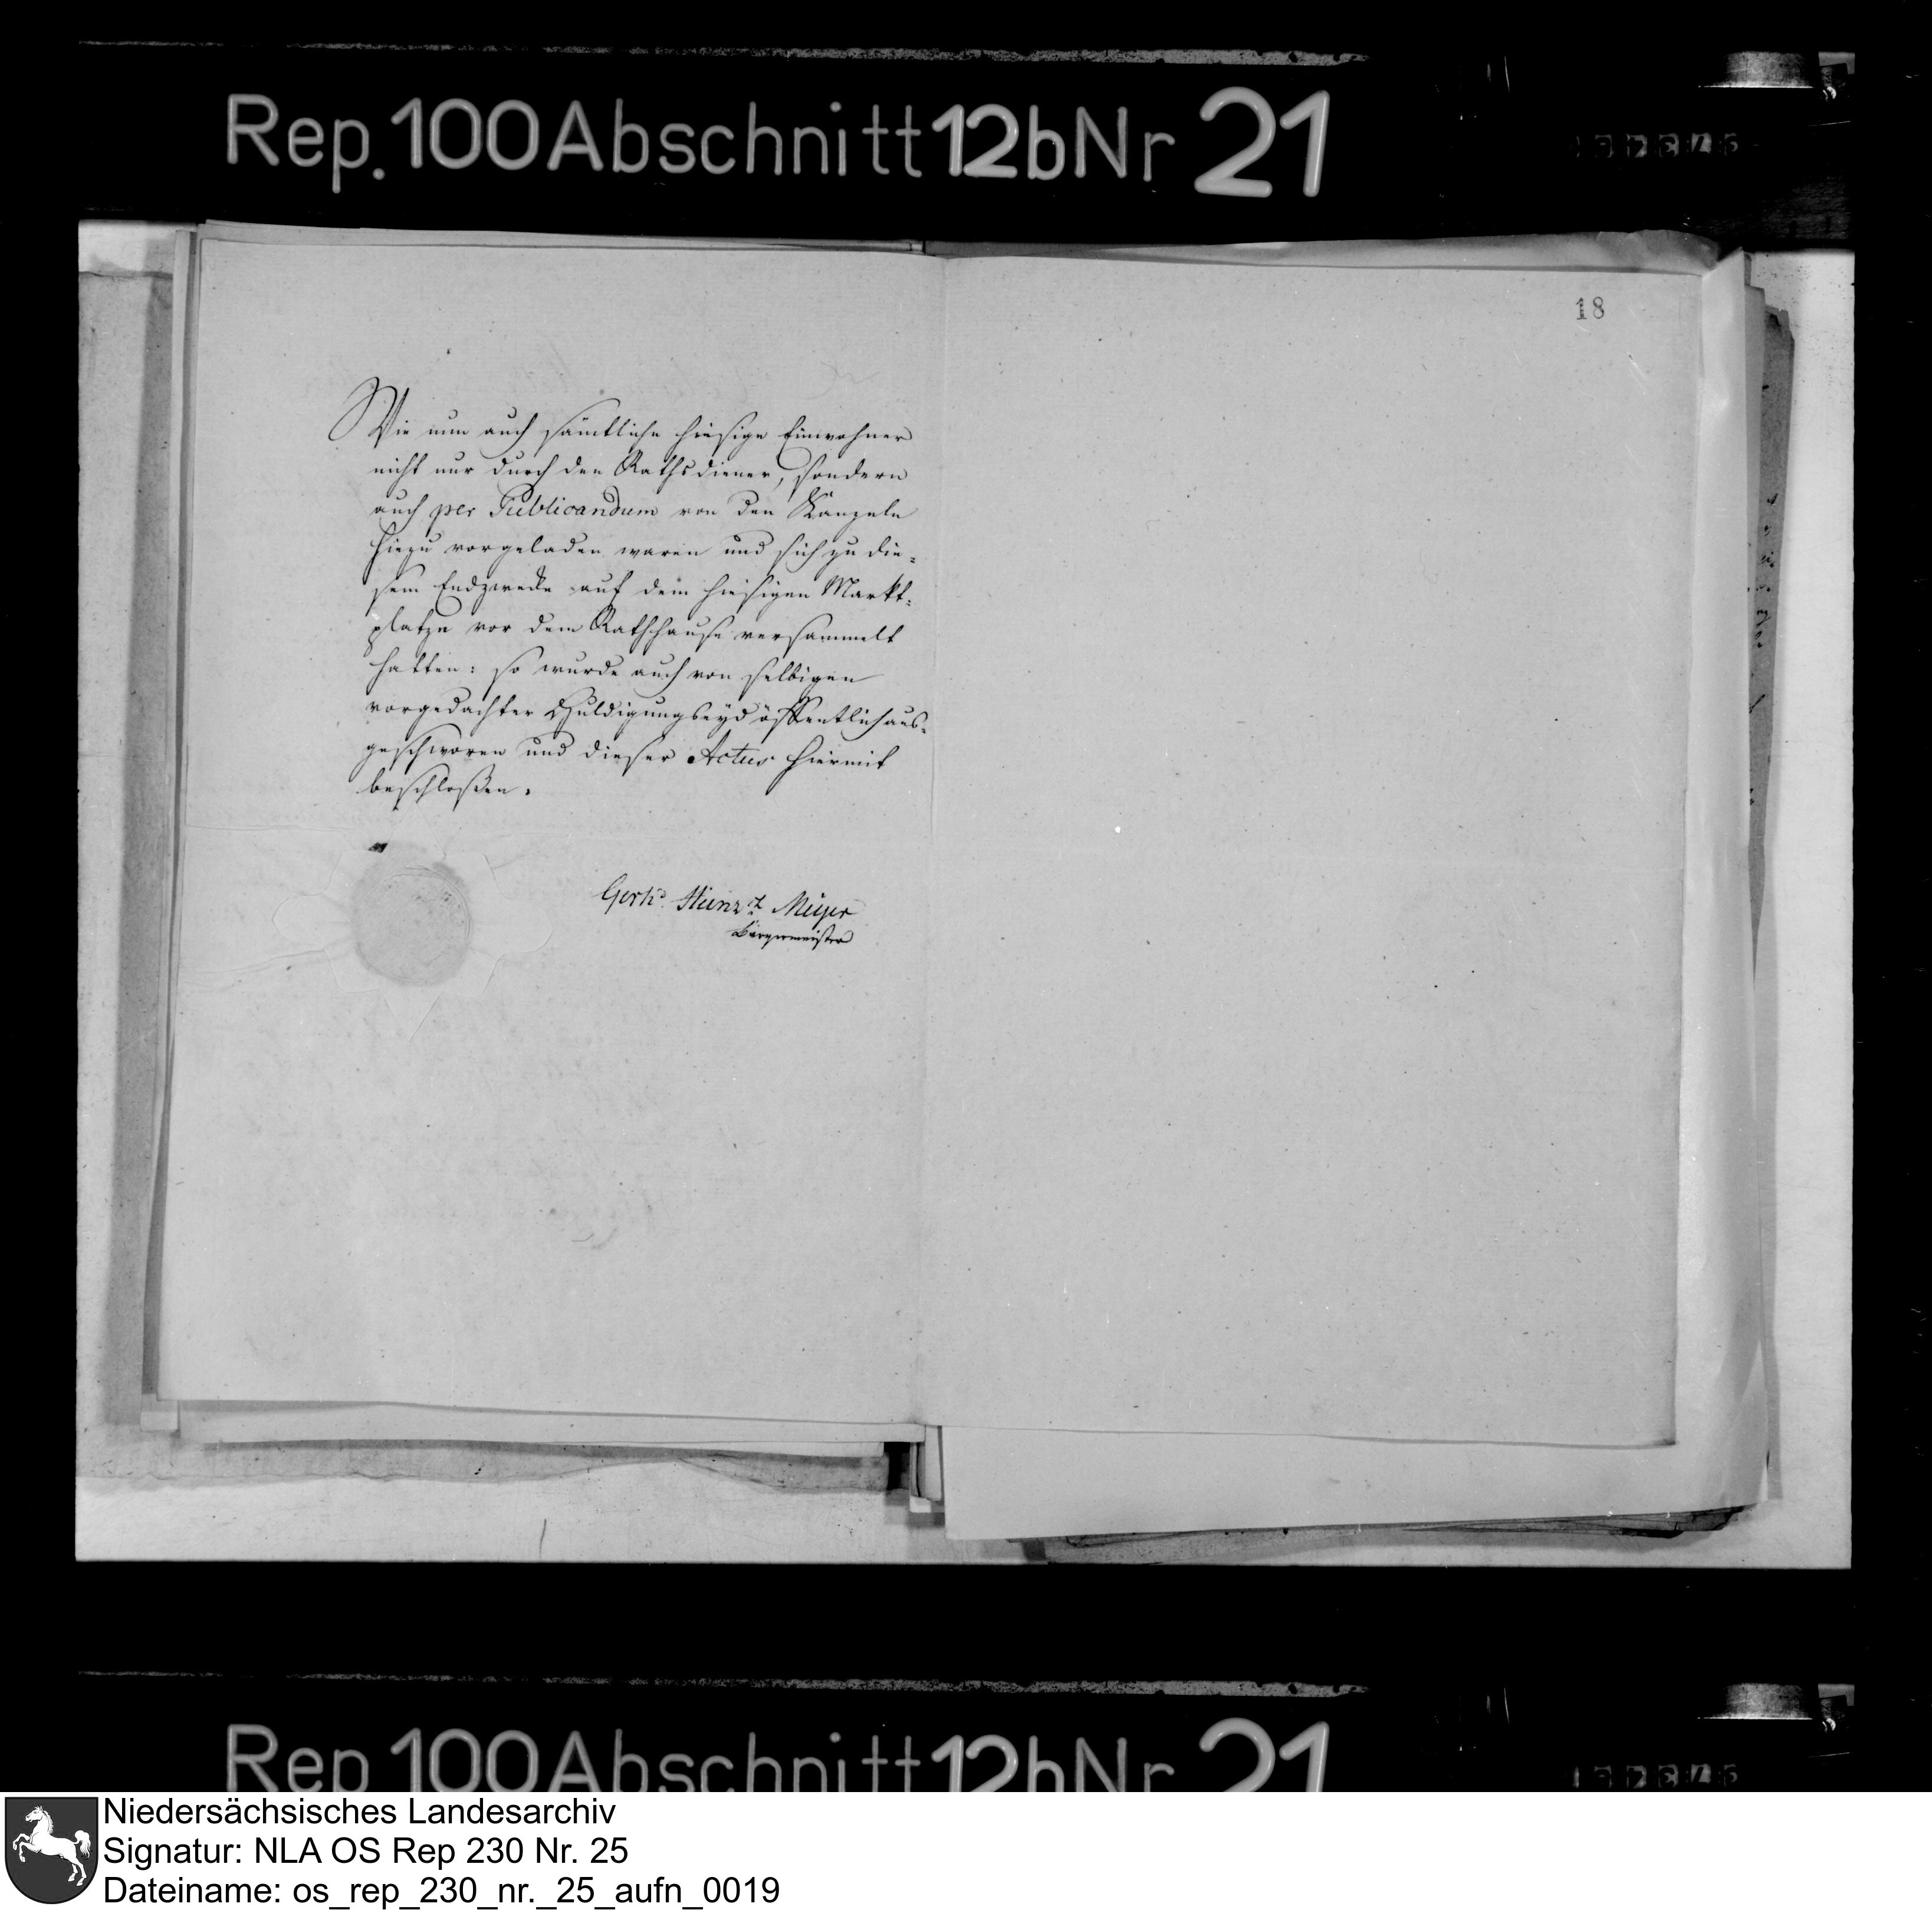 Rep. 100 Abschnitt 12b Nr 21
18
Wie nun auch sämtliche hiesige Einwohner
nicht nur durch den Rathsdiener, sondern
auch per Publicandum von den Kanzeln
hiezu vorgeladen waren und sich zu die-
sem Endzwecke auf dem hiesigen Markt-
platze vor dem Rathhause versammelt
hatten: so wurde auch von selbigen
vorgedachter Huldigungseyd öffentlich aus-
geschworen und dieser Actus hiermit
beschloßen.
Gerh. Meyer
Bürgermeister
Rep. 100 Abschnitt 12b Nr 21
Niedersächsisches Landesarchiv
Signatur: NLA OS Rep 230 Nr. 25
Dateiname: os_rep_230_nr._25_aufn_0019